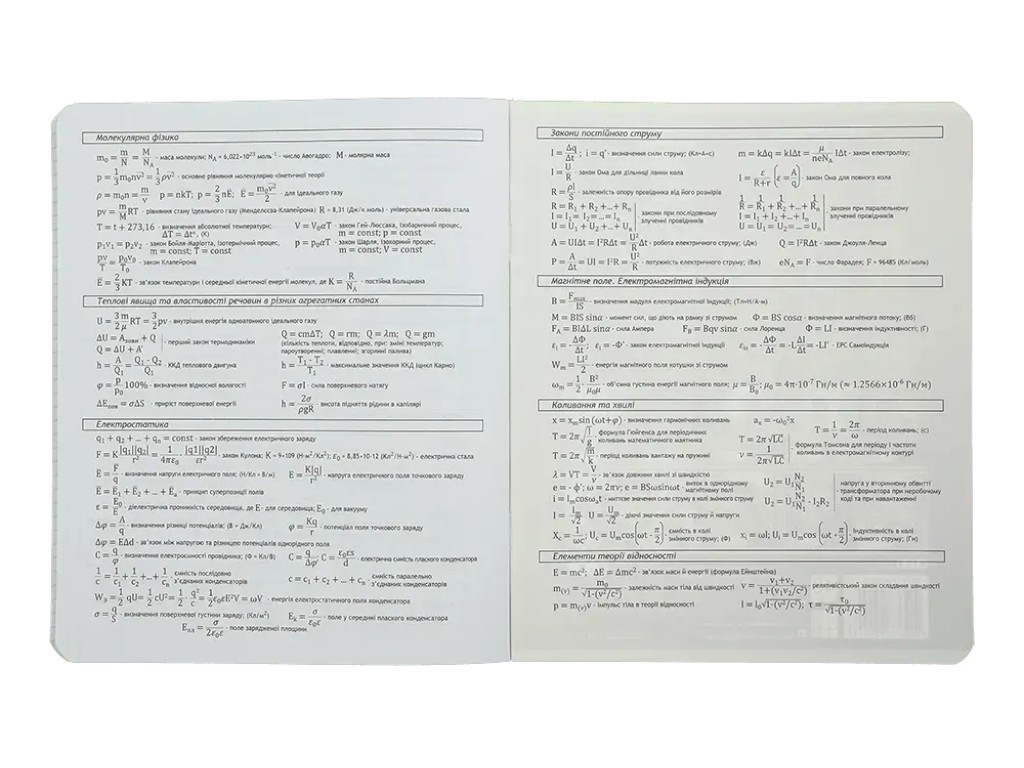 Молекулярна фізика
m₀ = m/N = M/N_A - маса молекули; N_A = 6,022•10²³ моль⁻¹ - число Авогадро; M - молярна маса
p = 1/3 m₀nv² = 1/3 ρv² - основне рівняння молекулярно кінетичної теорії
ρ = m₀n = m/v p = nkT; p = 2/3 nĒ; Ē = m₀v²/2 - для ідеального газу
pv = m/M RT - рівняння стану ідеального газу (Менделєєва-Клапейрона) R = 8,31 (Дж/к моль) - універсальна газова стала
T = t + 273,16 - визначення абсолютної температури; V = V₀αT - закон Гей-Люссака, ізобаричний процес,
ΔT = Δt°, (K) m = const; p = const
p₁v₁ = p₂v₂ - закон Бойля-Маріотта, ізотермічний процес, p = p₀αT - закон Шарля, ізохорний процес,
m = const; T = const m = const; V = const
pv/T = p₀v₀/T₀ - закон Клапейрона
Ē = 2/3 KT - зв'язок температури і середньої кінетичної енергії молекул, де K = R/N_A - постійна Больцмана
Теплові явища та властивості речовин в різних агрегатних станах
U = 3/2 m/μ RT = 3/2 pv - внутрішня енергія одноатомного ідеального газу
ΔU = Aзовн + Q - перший закон термодинаміки Q = cmΔT; Q = rm; Q = λm; Q = gm
Q = ΔU + A' (кількість теплоти, відповідно, при: зміні температур;
пароутворенні; плавленні; згоринні палива)
h = A/Q₁ = Q₁ - Q₂/Q₁ - ККД теплового двигуна h = T₁ - T₂/T₁ - максимальне значення ККД (цикл Карно)
φ = p/p₀ 100% - визначення відносної вологості F = σl - сила поверхневого натягу
ΔEпов = σΔS - приріст поверхневої енергії h = 2σ/ρgR - висота підняття рідини в капілярі
Електростатика
q₁ + q₂ + ... + qₙ = const - закон збереження електричного заряду
F = K |q₁||q₂|/r² = 1/4πε₀ |q1||q2|/εr² - закон Кулона; K = 9•109 (Н·м²/Кл²); ε₀ = 8,85•10-12 (Кл²/Н·м²) - електрична стала
Ē = F/q - визначення напруги електричного поля; (Н/Кл = В/м) E = K|q|/r² - напруга електричного поля точкового заряду
Ē = Ē₁ + Ē₂ + ... + Ēₙ - принцип суперпозиції полів
ε = E₀/E - діелектрична проникність середовища, де E - для середовища; E₀ - для вакууму
Δφ = A/q - визначення різниці потенціалів; (В = Дж/Кл) φ = Kq/r - потенціал поля точкового заряду
Δφ = EΔd - зв'язок між напругою та різницею потенціалів однорідного поля
C = q/φ - визначення електроємності провідника; (Ф = Кл/В) C = q/Δφ; C = ε₀εs/d - електрична ємність плаского конденсатора
1/c = 1/c₁ + 1/c₂ +...+ 1/cₙ ємність послідовно з'єднаних конденсаторів c = c₁ + c₂ + ... + cₙ ємність паралельно з'єднаних конденсаторів
W₉ = 1/2 qU = 1/2 cU² = 1/2 · q²/c = 1/2 ε₀εE²V = ωV - енергія електростатичного поля конденсатора
σ = q/S - визначення поверхневої густини заряду; (Кл/м²) Eₖ = σ/ε₀ε - поле у середині плаского конденсатора
Eпл = σ/2ε₀ε - поле зарядженої площини
Закони постійного струму
I = Δq/Δt ; i = q' - визначення сили струму; (Кл=А•с) m = kΔq = kIΔt = μ/neN_A IΔt - закон електролізу;
I = U/R - закон Ома для дільниці ланки кола I = ε/R+r (ε = A/q) - закон Ома для повного кола
R = ρl/S - залежність опору провідника від його розмірів
R = R₁ + R₂ +...+ Rₙ 1/R = 1/R₁ + 1/R₂ +...+ 1/Rₙ
I = I₁ = I₂ =...= Iₙ закони при послідовному злученні провідників I = I₁ + I₂ +...+ Iₙ закони при паралельному злученні провідників
U = U₁ + U₂ +...+ Uₙ U = U₁ = U₂ =...= Uₙ
A = UIΔt = I²RΔt = U²/R Δt - робота електричного струму; (Дж) Q = I²RΔt - закон Джоуля-Ленца
P = A/Δt = UI = I²R = U²/R - потужність електричного струму; (Вт) eN_A = F - число Фарадея; F = 96485 (Кл/моль)
Магнітне поле. Електромагнітна індукція
B = Fmax/IS - визначення модуля електромагнітної індукції; (Тл=Н/А·м)
M = BIS sinα - момент сил, що діють на рамку зі струмом Φ = BS cosα - визначення магнітного потоку; (Вб)
F_A = BIΔL sinα - сила Ампера F_B = Bqv sinα - сила Лоренца Φ = LI - визначення індуктивності; (Г)
εᵢ = -ΔΦ/Δt; εᵢ = -Φ' - закон електромагнітної індукції εᵢₙ = -ΔΦ/Δt = -L ΔI/Δt = -LI' - ЕРС Самоіндукція
Wₘ = LI²/2 - енергія магнітного поля котушки зі струмом
ωₘ = 1/2 · B²/μ₀μ - об'ємна густина енергії магнітного поля; μ = B/B₀; μ₀ = 4π·10⁻⁷ Гн/м (≈ 1.2566×10⁻⁶ Гн/м)
Коливання та хвилі
x = xₘsin (ωt+φ) - визначення гармонічних коливань aₓ = -ω₀²x T = 1/ν = 2π/ω - період коливань; (с)
T = 2π√l/g формула Гюйгенса для періодичних коливань математичного маятника T = 2π√LC
T = 2π√m/k - період коливань вантажу на пружині ν = 1/2π√LC формула Томсона для періоду і частоти коливань в електромагнітному контурі
λ = VT = V/ν - зв'язок довжини хвилі зі швидкістю
e = - ϕ'; ω = 2πν; e = BSωsinωt - виток в однорідному магнітному полі U₂ = U₁ N₂/N₁ напруга у вторинному обвитті
i = Iₘcosω₀t - миттєве значення сили струму в колі змінного струму U₂ = U₁ N₂/N₁ - I₂R₂ - трансформатора при неробочому ході та при навантаженні
I = Iₘ/√2 U = Uₘ/√2 - діючі значення сили струму й напруги
X_c = 1/ωc; U_c = Uₘcos(ωt - π/2) ємність в колі змінного струму; (Ф) xᵢ = ωl; Uᵢ = Uₘcos(ωt + π/2) індуктивність в колі змінного струму; (Гн)
Елементи теорії відносності
E = mc²; ΔE = Δmc² - зв'язок маси й енергії (формула Ейнштейна)
m(v) = m₀/√1-(v²/c²) залежність маси тіла від швидкості v = v₁+v₂/1+(v₁v₂/c²) - релятивістський закон складання швидкості
p = m(v)v - імпульс тіла в теорії відносності l = l₀√1-(v²/c²); τ = τ₀/√1-(v²/c²)